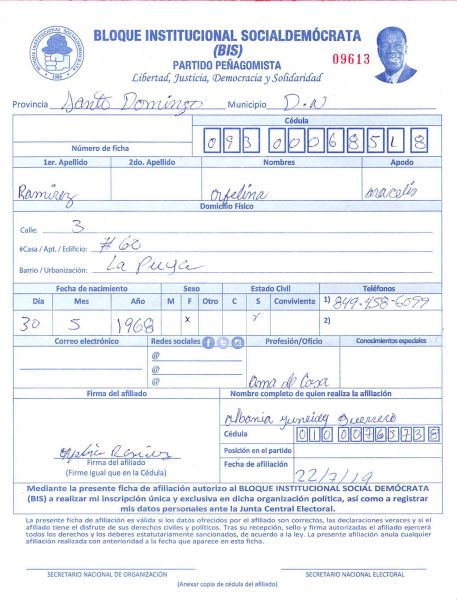 BLOQUE INSTITUCIONAL SOCIALDEMÓCRATA
(BIS)
PARTIDO PEÑAGOMISTA
09613
Libertad, Justicia, Democracia y Solidaridad
Provincia Santo Domingo Municipio D.N
Cédula
Número de ficha 093 0006851 8
1er. Apellido 2do. Apellido Nombres Apodo
Ramirez Orfelina aracelis
Domicilio Físico
Calle: 3
#Casa / Apt. / Edificio: #60
Barrio / Urbanización: La Puya
Fecha de nacimiento Sexo Estado Civil Teléfonos
Día Mes Año M F Otro C S Conviviente 1) 849-458-6099
30 5 1968 x 2)
Correo electrónico Redes sociales Profesión/Oficio Conocimientos especiales
@
@
@ Ama de Casa
Firma del afiliado Nombre completo de quien realiza la afiliación
Albania yuneidy Guerrero
Cédula 010 0076573 8
Posición en el partido
Firma del afiliado Fecha de afiliación
(Firme igual que en la Cédula) 22/7/19
Mediante la presente ficha de afiliación autorizo al BLOQUE INSTITUCIONAL SOCIAL DEMÓCRATA
(BIS) a realizar mi inscripción única y exclusiva en dicha organización política, así como a registrar
mis datos personales ante la Junta Central Electoral.
La presente ficha de afiliación es válida si los datos ofrecidos por el afiliado son correctos, las declaraciones veraces y si el
afiliado tiene el disfrute de sus derechos civiles y políticos. Tras su recepción, sello y firma autorizada el afiliado ejercerá
todos los derechos y los deberes estatutariamente sancionados, de acuerdo a la ley. La presente afiliación anula cualquier
afiliación realizada con anterioridad a la fecha que aparece en esta ficha.
SECRETARIO NACIONAL DE ORGANIZACIÓN SECRETARIO NACIONAL ELECTORAL
(Anexar copia de cédula del afiliado)